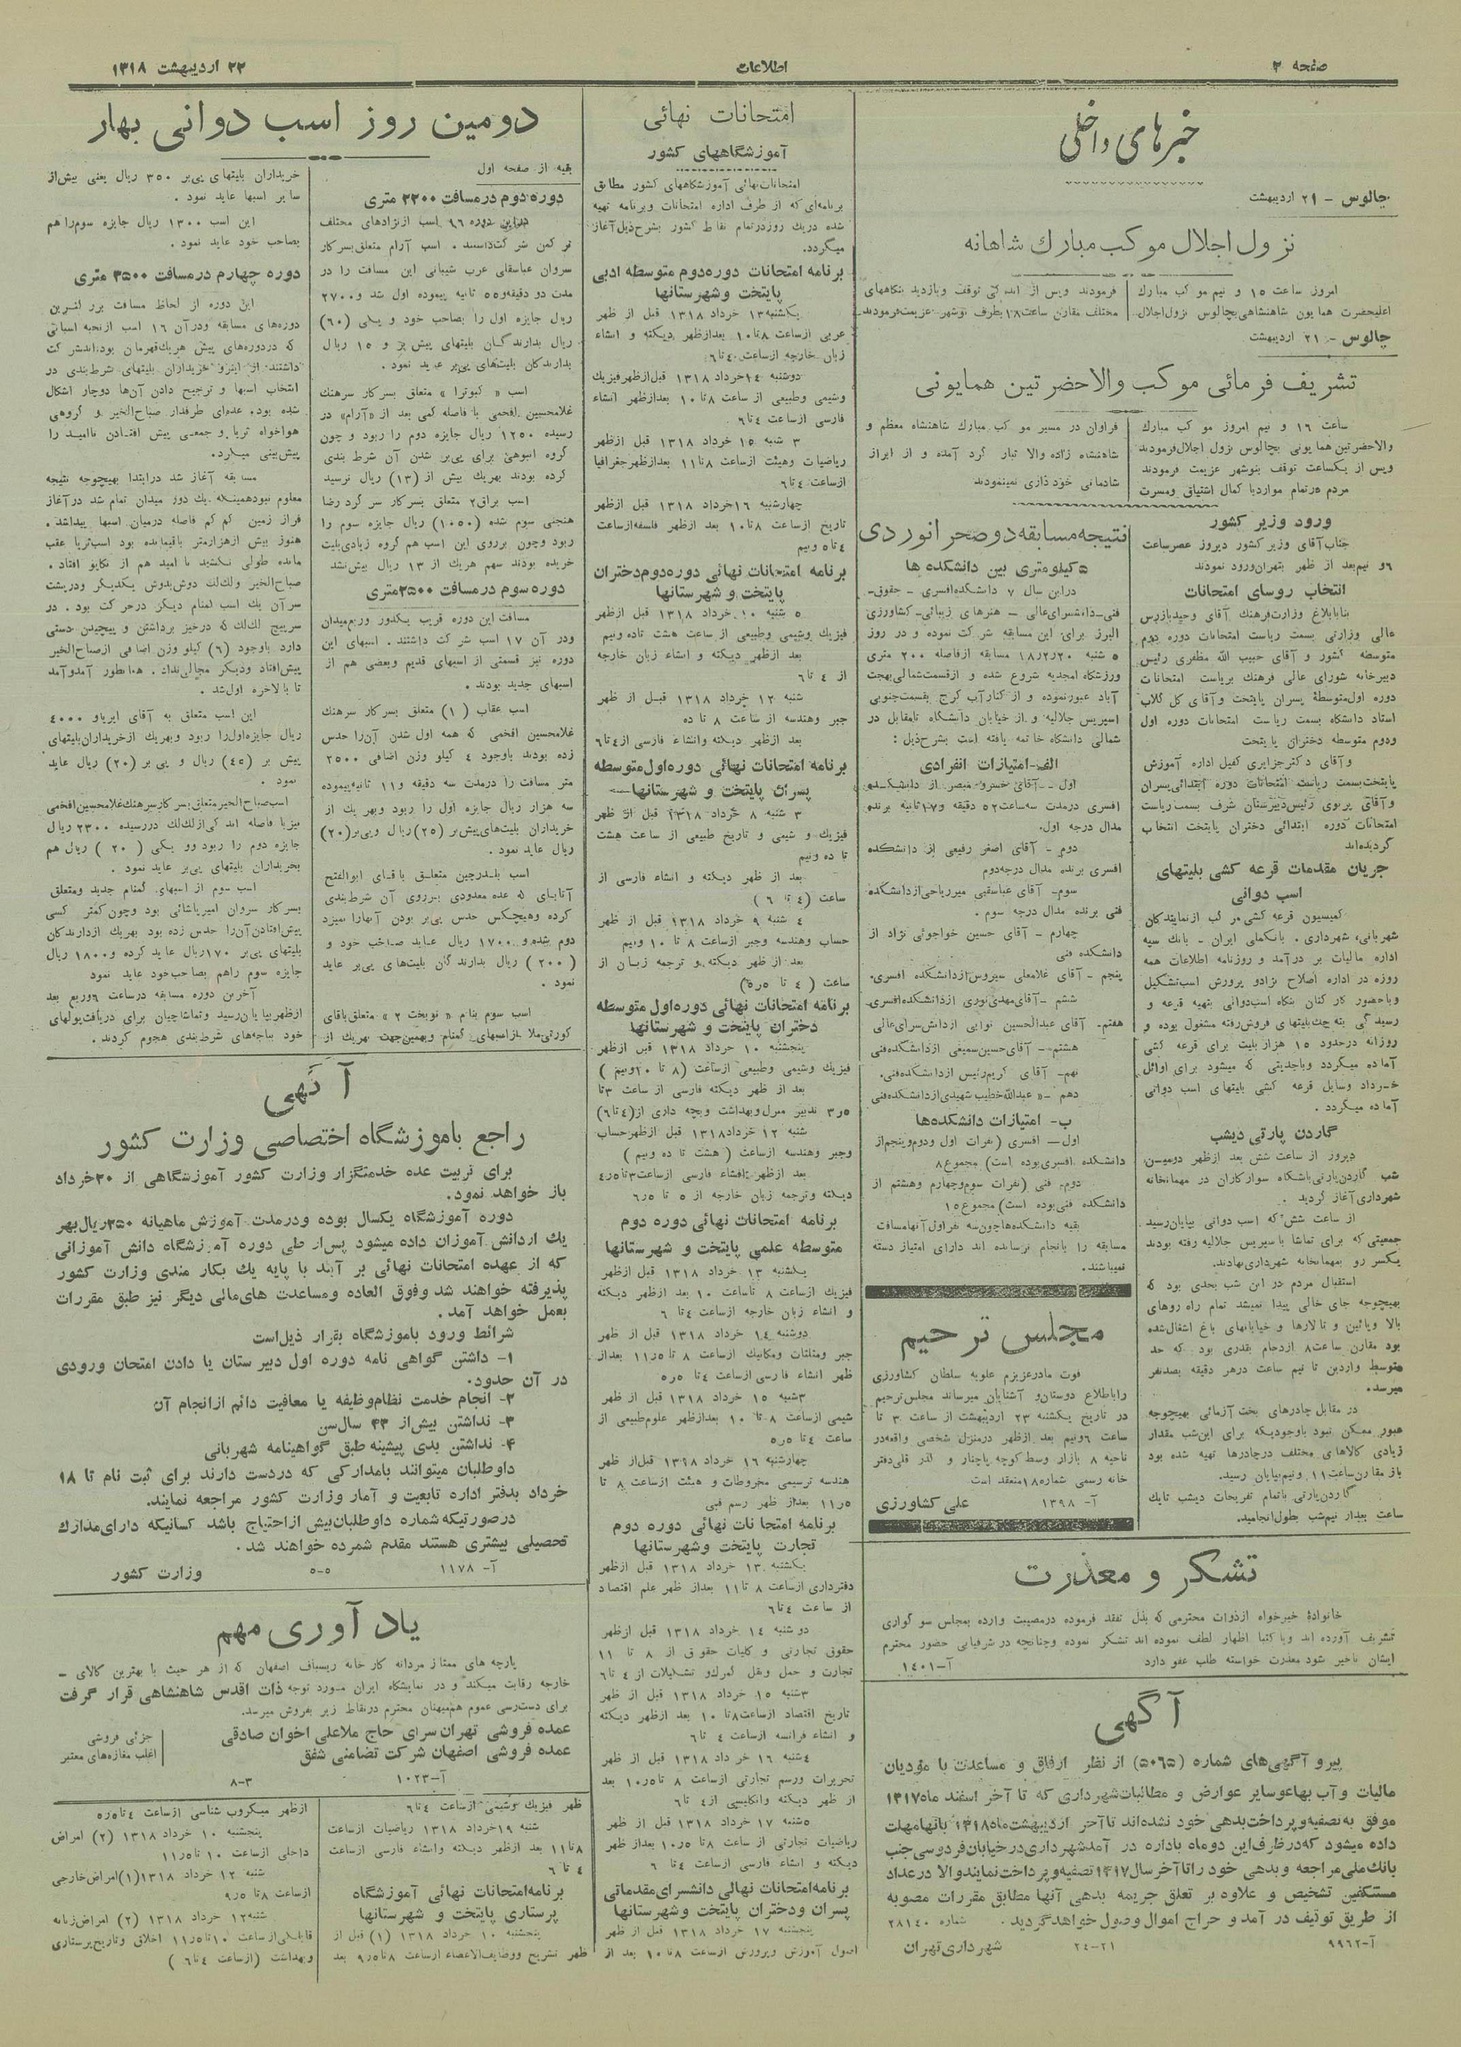 صفحه ۲
اطلاعات
۲۲ اردیبهشت ۱۳۱۸
خبرهای داخلی
چالوس - ۲۱ اردیبهشت
نزول اجلال موکب مبارك شاهانه
امروز ساعت ۱۵ و نیم موکب مبارك
اعلیحضرت همایون شاهنشاهی بچالوس نزول اجلال
فرمودند وپس از اندکی توقف وبازدید بنگاههای
مختلف مقارن ساعت ۱۸ بطرف نوشهر عزیمت فرمودند
چالوس - ۲۱ اردیبهشت
تشریف فرمائی موکب والاحضرتین همایونی
ساعت ۱۶ و نیم امروز موکب مبارك
والاحضرتین همایونی بچالوس نزول اجلال فرمودند
وپس از یکساعت توقف بنوشهر عزیمت فرمودند
مردم در تمام موارد با کمال اشتیاق ومسرت
فراوان در مسیر موکب مبارك شاهنشاه معظم و
شاهنشاه زاده والا تبار گرد آمده و از ابراز
شادمانی خودداری نمینمودند
ورود وزیر کشور
جناب آقای وزیر کشور دیروز عصر ساعت
۶و نیم بعد از ظهر بتهران ورود نمودند
انتخاب روسای امتحانات
بنابابلاغ وزارت فرهنگ آقای وحید بازرس
عالی وزارتی بسمت ریاست امتحانات دوره دوم
متوسطه کشور و آقای حبیب الله مظفری رئیس
دبیرخانه شورای عالی فرهنگ بریاست امتحانات
دوره اول متوسطهٔ پسران پایتخت وآقای گل گلاب
استاد دانشگاه بسمت ریاست امتحانات دوره اول
ودوم متوسطه دختران پایتخت
و آقای دکتر جزایری کفیل اداره آموزش
پایتخت بسمت ریاست امتحانات دوره ابتدائی پسران
وآقای پرتوی رئیس دبیرستان شرف بسمت ریاست
امتحانات دوره ابتدائی دختران پایتخت انتخاب
گردیده‌اند
جریان مقدمات قرعه کشی بلیتهای
اسب دوانی
کمیسیون قرعه کشی مرکب از نمایندگان
شهربانی، شهرداری، بانك ملی ایران - بانك سپه
اداره مالیات بر درآمد و روزنامه اطلاعات همه
روزه در اداره اصلاح نژاد و پرورش اسب تشکیل
وباحضور کارکنان بنگاه اسب دوانی بتهیه قرعه و
رسیدگی بته چك بلیتهای فروش رفته مشغول بوده و
روزانه در حدود ۱۵ هزار بلیت برای قرعه کشی
آماده میگردد وباجدیتی که میشود برای اوائل
خرداد وسایل قرعه کشی بلیتهای اسب دوانی
آماده میگردد .
گاردن پارتی دیشب
دیروز از ساعت شش بعد ازظهر دومین
شب گاردن پارتی باشگاه سوارکاران در مهمانخانه
شهرداری آغاز گردید .
از ساعت شش که اسب دوانی بپایان رسید
جمعیتی که برای تماشا باسپریس جلالیه رفته بودند
یکسر رو بمهمانخانه شهرداری نهادند.
استقبال مردم در این شب بحدی بود که
بهیچوجه جای خالی پیدا نمیشد تمام راه روهای
بالا وپائین و تالارها و خیابانهای باغ اشغال شده
بود مقارن ساعت ۸ ازدحام بقدری بود که حد
متوسط واردین تا نیم ساعت در هر دقیقه بصد نفر
میرسد.
در مقابل چادرهای بخت آزمائی بهیچوجه
عبور ممکن نبود باوجودیکه برای این شب مقدار
زیادی کالاهای مختلف در چادرها تهیه شده بود
باز مقارن ساعت ۱۱ و نیم بپایان رسید.
گاردن پارتی باتمام تفریحات دیشب تا یك
ساعت بعد از نیم شب بطول انجامید.
نتیجه مسابقه دو صحرا نوردی
۵ کیلومتری بین دانشکده ها
در این سال ۷ دانشکده افسری - حقوق -
فنی - دانشسرای عالی - هنرهای زیبائی - کشاورزی
البرز برای این مسابقه شرکت نموده و در روز
۵ شنبه ۱۸/۲/۲۰ مسابقه از فاصله ۲۰۰ متری
ورزشگاه امجدیه شروع شده و از قسمت شمالی بهجت
آباد عبور نموده و از کنار آب کرج بقسمت جنوبی
اسپریس جلالیه و از خیابان دانشگاه تا مقابل در
شمالی دانشگاه خاتمه یافته است بشرح ذیل :
الف - امتیازات انفرادی
اول - آقای خسرو مبصر از دانشکده
مدال درجه اول.
دوم - آقای اصغر رفیعی از دانشکده
افسری برنده مدال درجه دوم
سوم - آقای عباسقلی میر ریاحی از دانشکده
فنی برنده مدال درجه سوم .
چهارم - آقای حسین خواجوئی نژاد از
دانشکده فنی
پنجم - آقای غلامعلی سیروس از دانشکده افسری.
ششم - آقای مهدی نوری از دانشکده افسری-
هفتم - آقای عبدالحسین نوایی از دانشسرای عالی
هشتم - آقای حسین سمیعی از دانشکده فنی
نهم - آقای کریم رئیس از دانشکده فنی.
دهم - « عبدالله خطیب شهیدی از دانشکده فنی
ب - امتیازات دانشکده‌ها
اول - افسری (نفرات اول ودوم وپنجم از
دانشکده افسری بوده است) مجموع ۸
دوم - فنی (نفرات سوم وچهارم وهشتم از
دانشکده فنی بوده است) مجموع ۱۵
بقیه دانشکده‌ها چون سه نفر اول آنها مسافت
مسابقه را بانجام نرسانده اند دارای امتیاز دسته
نمیباشند.
مجلس ترحیم
فوت مادر عزیزم علویه سلطان کشاورزی
را باطلاع دوستان و آشنایان میرساند مجلس ترحیم
در تاریخ یکشنبه ۲۳ اردیبهشت از ساعت ۳ تا
ساعت ۶ ونیم بعد ازظهر درمنزل شخصی واقعه در
ناحیه ۸ بازار وسط کوچه پاچنار و گذر قلی دفتر
خانه رسمی شماره ۱۸ منعقد است
آ- ۱۳۹۸ علی کشاورزی
تشکر و معذرت
خانوادهٔ خیرخواه از ذوات محترمی که بذل تفقد فرموده درمصیبت وارده بمجلس سوگواری
تشریف آورده اند ویا کتبا اظهار لطف نموده اند تشکر نموده وچنانچه در شرفیابی حضور محترم
ایشان تاخیر شود معذرت خواسته طلب عفو دارد
آ-۱۴۰۱
آگهی
پیرو آگهی‌های شماره (۵۰۶۵) از نظر ارفاق و مساعدت با مؤدیان
مالیات و آب بها و سایر عوارض و مطالبات شهرداری که تا آخر اسفند ماه ۱۳۱۷
موفق به تصفیه وپرداخت بدهی خود نشده‌اند تا آخر اردیبهشت ماه ۱۳۱۸ بآنها مهلت
داده میشود که در ظرف این دو ماه باداره در آمد شهرداری در خیابان فردوسی جنب
بانك ملی مراجعه و بدهی خود را تا آخر سال ۱۳۱۷ تصفیه و پرداخت نمایند والا در عداد
مستنکفین تشخیص و علاوه بر تعلق جریمه بدهی آنها مطابق مقررات مصوبه
از طریق توقیف در آمد و حراج اموال وصول خواهد گردید . شماره ۲۸۱۴۰
آ-۹۹۶۲ ۲۱-۲۴ شهرداری تهران
امتحانات نهائی
آموزشگاههای کشور
امتحانات نهائی آموزشگاههای کشور مطابق
برنامه‌ای که از طرف اداره امتحانات وبرنامه تهیه
شده دریك روز درتمام نقاط کشور بشرح ذیل آغاز
میگردد.
برنامه امتحانات دوره دوم متوسطه ادبی
پایتخت و شهرستانها
یکشنبه ۱۳ خرداد ۱۳۱۸ قبل از ظهر
عربی از ساعت ۸ تا ۱۰ بعد از ظهر دیکته و انشاء
زبان خارجه از ساعت ۴ تا ۶
دوشنبه ۱۴ خرداد ۱۳۱۸ قبل از ظهر فیزیك
وشیمی وطبیعی از ساعت ۸ تا ۱۰ بعد از ظهر انشاء
فارسی از ساعت ۴ تا ۶
۳ شنبه ۱۵ خرداد ۱۳۱۸ قبل از ظهر
ریاضیات وهیئت از ساعت ۸ تا ۱۱ بعد از ظهر جغرافیا
از ساعت ۴ تا ۶
چهارشنبه ۱۶ خرداد ۱۳۱۸ قبل از ظهر
تاریخ از ساعت ۸ تا ۱۰ بعد از ظهر فلسفه از ساعت
۴ تا ۵ ونیم
برنامه امتحانات نهائی دوره دوم دختران
پایتخت و شهرستانها
۵ شنبه ۱۰ خرداد ۱۳۱۸ قبل از ظهر
فیزیك وشیمی وطبیعی از ساعت هشت تا ده ونیم
بعد از ظهر دیکته و انشاء زبان خارجه
از ۴ تا ۶
شنبه ۱۲ خرداد ۱۳۱۸ قبل از ظهر
جبر وهندسه از ساعت ۸ تا ده
بعد از ظهر دیکته وانشاء فارسی از ۴ تا ۶
برنامه امتحانات نهائی دوره اول متوسطه
پسران پایتخت و شهرستانها
۳ شنبه ۸ خرداد ۱۳۱۸ قبل از ظهر
فیزیك و شیمی و تاریخ طبیعی از ساعت هشت
تا ده ونیم
بعد از ظهر دیکته و انشاء فارسی از
ساعت (۴ تا ۶)
۴ شنبه ۹ خرداد ۱۳۱۸ قبل از ظهر
حساب وهندسه وجبر از ساعت ۸ تا ۱۰ ونیم
بعد از ظهر دیکته و ترجمه زبان از
ساعت (۴ تا ۵ر۵)
برنامه امتحانات نهائی دوره اول متوسطه
دختران پایتخت و شهرستانها
پنجشنبه ۱۰ خرداد ۱۳۱۸ قبل از ظهر
فیزیك وشیمی وطبیعی از ساعت (۸ تا ۱۰ ونیم)
بعد از ظهر دیکته فارسی از ساعت ۳ تا
۳ر۵ تدبیر منزل وبهداشت وبچه داری از (۴ تا ۶)
شنبه ۱۲ خرداد ۱۳۱۸ قبل از ظهر حساب
وجبر وهندسه از ساعت (هشت تا ده ونیم)
بعد از ظهر انشاء فارسی از ساعت ۳ تا ۴ر۵
دیکته وترجمه زبان خارجه از ۵ تا ۶ر۵
برنامه امتحانات نهائی دوره دوم
متوسطه علمی پایتخت و شهرستانها
یکشنبه ۱۳ خرداد ۱۳۱۸ قبل از ظهر
فیزیك از ساعت ۸ تا ساعت ۱۰ بعد از ظهر دیکته
و انشاء زبان خارجه از ساعت ۴ تا ۶
دوشنبه ۱۴ خرداد ۱۳۱۸ قبل از ظهر
جبر ومثلثات ومکانیك از ساعت ۸ تا ۱۱ر۵ بعد از
ظهر انشاء فارسی از ساعت ۴ تا ۵ر۵
۳شنبه ۱۵ خرداد ۱۳۱۸ قبل از ظهر
شیمی از ساعت ۸ تا ۱۰ بعد از ظهر علوم طبیعی از
ساعت ۴ تا ۵ر۵
چهارشنبه ۱۶ خرداد ۱۳۱۸ قبل از ظهر
هندسه ترسیمی مخروطات و هیئت از ساعت ۸ تا
۱۱ر۵ بعد از ظهر رسم فنی
برنامه امتحانات نهائی دوره دوم
تجارت پایتخت و شهرستانها
یکشنبه ۱۳ خرداد ۱۳۱۸ قبل از ظهر
دفترداری از ساعت ۸ تا ۱۱ بعد از ظهر علم اقتصاد
از ساعت ۴ تا ۶
دوشنبه ۱۴ خرداد ۱۳۱۸ قبل از ظهر
حقوق تجارتی و کلیات حقوق از ۸ تا ۱۱
تجارت و حمل ونقل گمرك و تشکیلات از ۴ تا ۶
۳شنبه ۱۵ خرداد ۱۳۱۸ قبل از ظهر
تاریخ اقتصاد از ساعت ۸ تا ۱۰ بعد از ظهر دیکته
و انشاء فرانسه از ساعت ۴ تا ۶
۴شنبه ۱۶ خرداد ۱۳۱۸ قبل از ظهر
تحریرات ورسم تجارتی از ساعت ۸ تا ۱۰ر۵ بعد
از ظهر دیکته وانگلیسی از ۴ تا ۶
۵شنبه ۱۷ خرداد ۱۳۱۸ قبل از ظهر
ریاضیات تجارتی از ساعت ۸ تا ۱۰ر۵ بعد از ظهر
دیکته و انشاء فارسی از ساعت ۴ تا ۶
برنامه امتحانات نهائی دانشسرای مقدماتی
پسران ودختران پایتخت وشهرستانها
پنجشنبه ۱۷ خرداد ۱۳۱۸ قبل از ظهر
اصول آموزش وپرورش از ساعت ۸ تا ۱۰ بعد از
ظهر فیزیك وشیمی از ساعت ۴ تا ۶
شنبه ۱۹ خرداد ۱۳۱۸ ریاضیات از ساعت
۸ تا ۱۱ بعد از ظهر دیکته وانشاء فارسی از ساعت
۴ تا ۶
برنامه امتحانات نهائی آموزشگاه
پرستاری پایتخت و شهرستانها
پنجشنبه ۱۰ خرداد ۱۳۱۸ (۱) قبل از
ظهر تشریح ووظایف الاعضاء از ساعت ۸ تا ۹ر۵ بعد
ازظهر میکروب شناسی از ساعت ۴ تا ۵ر۵
پنجشنبه ۱۰ خرداد ۱۳۱۸ (۲) امراض
داخلی از ساعت ۱۰ تا ۱۱ر۵
شنبه ۱۲ خرداد ۱۳۱۸ (۱) امراض خارجی
از ساعت ۸ تا ۹ر۵
شنبه ۱۲ خرداد ۱۳۱۸ (۲) امراض زنانه
قابلگی از ساعت ۱۰ تا ۱۱ر۵ اخلاق وتاریخ پرستاری
وبهداشت (از ساعت ۴ تا ۶)
دومین روز اسب دوانی بهار
بقیه از صفحه اول
دوره دوم در مسافت ۲۲۰۰ متری
در این دوره ۹۶ اسب از نژادهای مختلف
ترکمن شرکت داشتند . اسب آرام متعلق بسرکار
سروان عباسقلی عرب شیبانی این مسافت را در
مدت دو دقیقه و ۵۵ ثانیه پیموده اول شد و ۲۷۰۰
ریال جایزه اول را بصاحب خود و یکی (۶۰)
ریال بدارندگان بلیتهای پیش بر و ۱۵ ریال
بدارندگان بلیت‌های پی‌بر عاید نمود .
اسب « کبوترا » متعلق بسرکار سرهنك
غلامحسین افخمی با فاصله کمی بعد از «آرام» در
رسیده ۱۲۵۰ ریال جایزه دوم را ربود و چون
گروه انبوهی برای پی‌بر شدن آن شرط بندی
کرده بودند بهریك بیش از (۱۳) ریال نرسید
اسب براق ۲ متعلق بسرکار سرگرد رضا
هنجنی سوم شده (۱۰۵۰) ریال جایزه سوم را
ربود وچون برروی این اسب هم گروه زیادی بلیت
خریده بودند سهم هریك از ۱۳ ریال بیش نشد
دوره سوم در مسافت ۲۵۰۰ متری
مسافت این دوره قریب یکدور وربع میدان
ودر آن ۱۷ اسب شرکت داشتند . اسبهای این
دوره نیز قسمتی از اسبهای قدیم وبعضی هم از
اسبهای جدید بودند .
اسب عقاب (۱) متعلق بسرکار سرهنك
غلامحسین افخمی که همه اول شدن آن را حدس
زده بودند باوجود ۴ کیلو وزن اضافی ۲۵۰۰
متر مسافت را درمدت سه دقیقه و ۱۱ ثانیه پیموده
سه هزار ریال جایزه اول را ربود و بهر یك از
خریداران بلیت‌های پیش بر (۲۵) ریال و پی‌بر (۲۰)
ریال عاید نمود .
اسب بلدرچین متعلق باقای ابوالفتح
آتابای که عده معدودی برروی آن شرط بندی
کرده وهیچکس حدس پی‌بر بودن آنها را نمیزد
دوم شده و ۱۷۰۰ ریال عاید صاحب خود و
(۲۰۰) ریال بدارندگان بلیت‌های پی‌بر عاید
نمود .
اسب سوم بنام « نوبخت ۲ » متعلق باقای
گورتی ملا بازاسبهای گمنام و بهمین جهت بهریك از
خریداران بلیتهای پی‌بر ۳۵۰ ریال یعنی بیش از
سایر اسبها عاید نمود .
این اسب ۱۳۰۰ ریال جایزه سوم را هم
بصاحب خود عاید نمود .
دوره چهارم در مسافت ۳۵۰۰ متری
این دوره از لحاظ مسافت بزرگترین
دوره‌های مسابقه ودرآن ۱۶ اسب از نخبه اسبانی
که در دوره‌های پیش هریك قهرمان بودند شرکت
داشتند. از اینرو خریداران بلیتهای شرط بندی در
انتخاب اسبها و ترجیح دادن آن‌ها دوچار اشکال
شده بود. عده‌ای طرفدار صباح الخیر و گروهی
هواخواه ثریا و جمعی پیش افتادن ناامید را
پیش بینی میکرد.
مسابقه آغاز شد در ابتدا بهیچوجه نتیجه
معلوم نبود همینکه یك دور میدان تمام شد در آغاز
فراز زمین کم کم فاصله درمیان اسبها پیدا شد .
هنوز بیش از هزار متر باقیمانده بود اسب ثریا عقب
مانده طولی نکشید نا امید هم از تکاپو افتاد .
صباح الخیر ولك لك دوش بدوش یکدیگر ودرپشت
سر آن یك اسب گمنام دیگر درحرکت بود . در
سرپیچ لك لك که درخیز برداشتن و پیچیدن دستی
دارد باوجود (۶) کیلو وزن اضافی از صباح الخیر
پیش افتاد ودیگر مجالی نداد . همانطور آمد و آمد
تا بالاخره اول شد .
این اسب متعلق به آقای ابریاو ۴۰۰۰
ریال جایزه اول را ربود وبهریك از خریداران بلیتهای
پیش بر (۴۵) ریال و پی بر (۲۰) ریال عاید
نمود .
اسب صباح الخیر متعلق بسرکار سرهنك غلامحسین افخمی
نیز با فاصله اندکی از لك لك در رسیده ۲۳۰۰ ریال
جایزه دوم را ربود و یکی (۲۰) ریال هم
بخریداران بلیتهای پی‌بر عاید نمود .
اسب سوم از اسبهای گمنام جدید ومتعلق
بسرکار سروان امیر پاشائی بود وچون کمتر کسی
پیش افتادن آن را حدس زده بود بهریك از دارندگان
بلیتهای پی‌بر ۱۷۰ ریال عاید کرده و ۱۸۰۰ ریال
جایزه سوم را هم بصاحب خود عاید نمود
آخرین دوره مسابقه در ساعت ۶ وربع بعد
از ظهر بپایان رسید وتماشاچیان برای دریافت پولهای
خود بباجه‌های شرط بندی هجوم کردند .
آگهی
راجع باموزشگاه اختصاصی وزارت کشور
برای تربیت عده خدمتگزار وزارت کشور آموزشگاهی از ۲۰ خرداد
باز خواهد نمود.
دوره آموزشگاه یکسال بوده ودرمدت آموزش ماهیانه ۲۵۰ ریال بهر
یك از دانش آموزان داده میشود پس از طی دوره آموزشگاه دانش آموزانی
که از عهده امتحانات نهائی بر آیند با پایه یك بکار مندی وزارت کشور
پذیرفته خواهند شد وفوق العاده ومساعدت های مالی دیگر نیز طبق مقررات
بعمل خواهد آمد.
شرائط ورود باموزشگاه بقرار ذیل است
۱- داشتن گواهی نامه دوره اول دبیرستان یا دادن امتحان ورودی
در آن حدود.
۲- انجام خدمت نظام وظیفه یا معافیت دائم از انجام آن
۳- نداشتن بیش از ۲۳ سال سن
۴- نداشتن بدی پیشینه طبق گواهینامه شهربانی
داوطلبان میتوانند بامدارکی که دردست دارند برای ثبت نام تا ۱۸
خرداد بدفتر اداره تابعیت و آمار وزارت کشور مراجعه نمایند.
درصورتیکه شماره داوطلبان بیش از احتیاج باشد کسانیکه دارای مدارك
تحصیلی بیشتری هستند مقدم شمرده خواهند شد .
آ- ۱۱۷۸ ۵-۵ وزارت کشور
یاد آوری مهم
پارچه های ممتاز مردانه کارخانه ریسباف اصفهان که از هر حیث با بهترین کالای -
خارجه رقابت میکند و در نمایشگاه ایران مورد توجه ذات اقدس شاهنشاهی قرار گرفت
برای دست‌رسی عموم هم‌میهنان محترم درنقاط زیر بفروش میرسد.
عمده فروشی تهران سرای حاج ملاعلی اخوان صادقی
عمده فروشی اصفهان شرکت تضامنی شفق
جزئی فروشی
اغلب مغازه‌های معتبر
آ-۱۰۲۳ ۸-۳